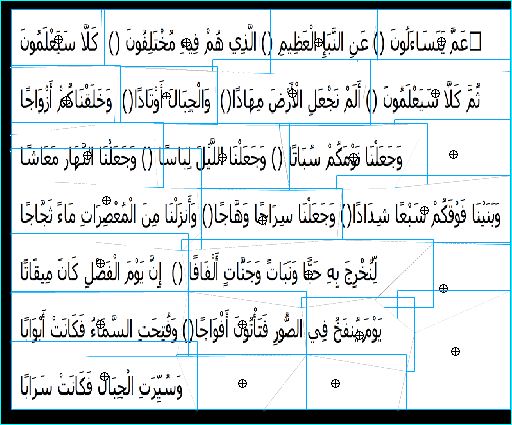 عَمَّ يَتَسَاءَلُونَ () عَنِ النَّبَإِ الْعَظِيمِ () الَّذِي هُمْ فِيهِ مُخْتَلِفُونَ () كَلَّا سَيَعْلَمُونَ
ثُمَّ كَلَّا سَيَعْلَمُونَ () أَلَمْ نَجْعَلِ الْأَرْضَ مِهَادًا() وَالْجِبَالَ أَوْتَادًا() وَخَلَقْنَاكُمْ أَزْوَاجًا
وَجَعَلْنَا نَوْمَكُمْ سُبَاتًا () وَجَعَلْنَا اللَّيْلَ لِبَاسًا () وَجَعَلْنَا النَّهَارَ مَعَاشًا
وَبَنَيْنَا فَوْقَكُمْ سَبْعًا شِدَادًا() وَجَعَلْنَا سِرَاجًا وَهَّاجًا() وَأَنْزَلْنَا مِنَ الْمُعْصِرَاتِ مَاءً ثَجَّاجًا
لِّنُخْرِجَ بِهِ حَبًّا وَنَبَاتً وَجَنَّاتٍ أَلْفَافًا () إِنَّ يَوْمَ الْفَصْلِ كَانَ مِيقَاتًا
يَوْمَ يُنفَخُ فِي الصُّورِ فَتَأْتُونَ أَفْوَاجًا() وَفُتِحَتِ السَّمَاءُ فَكَانَتْ أَبْوَابًا
وَسُيِّرَتِ الْجِبَالُ فَكَانَتْ سَرَابًا